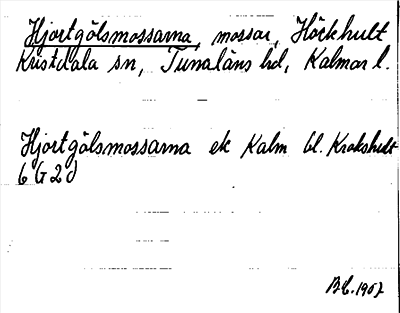 Hjortgölsmossarna, mossar, Hörkhult
Kristdala sn, Tunaläns hd, Kalmar l.
Hjortgölsmossarna ek Kalm bl. Krokshult
6 G 2 d
1967